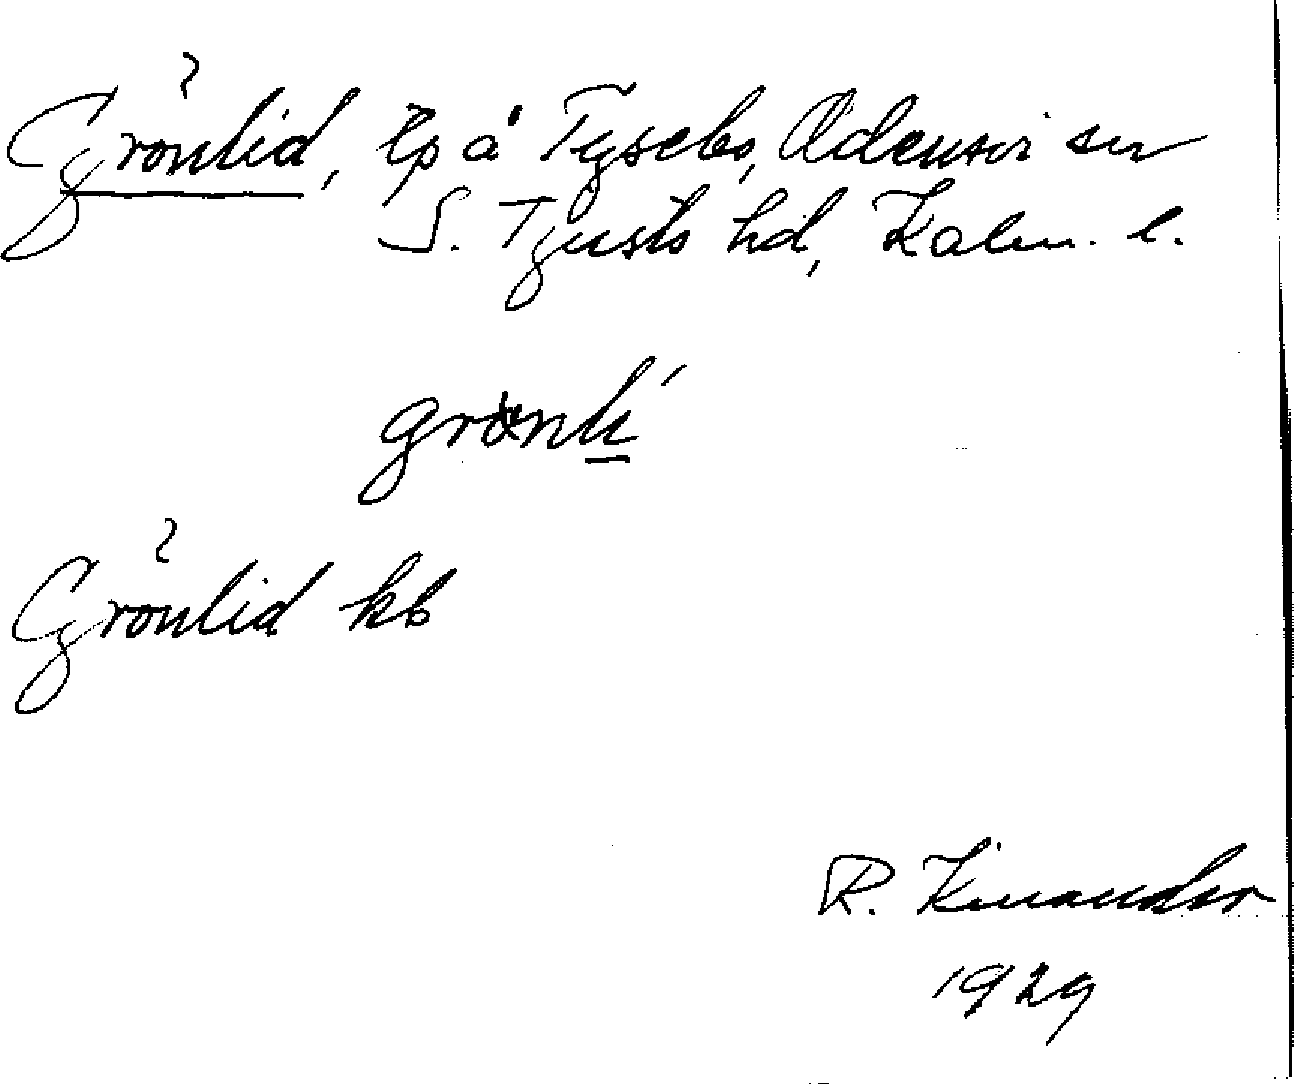 Grönlid, lp å Tysebo, Odensvi sn
S. Tjusts hd, Kalm. l.
grönli'
Grönlid kb
R. Kinander
1929